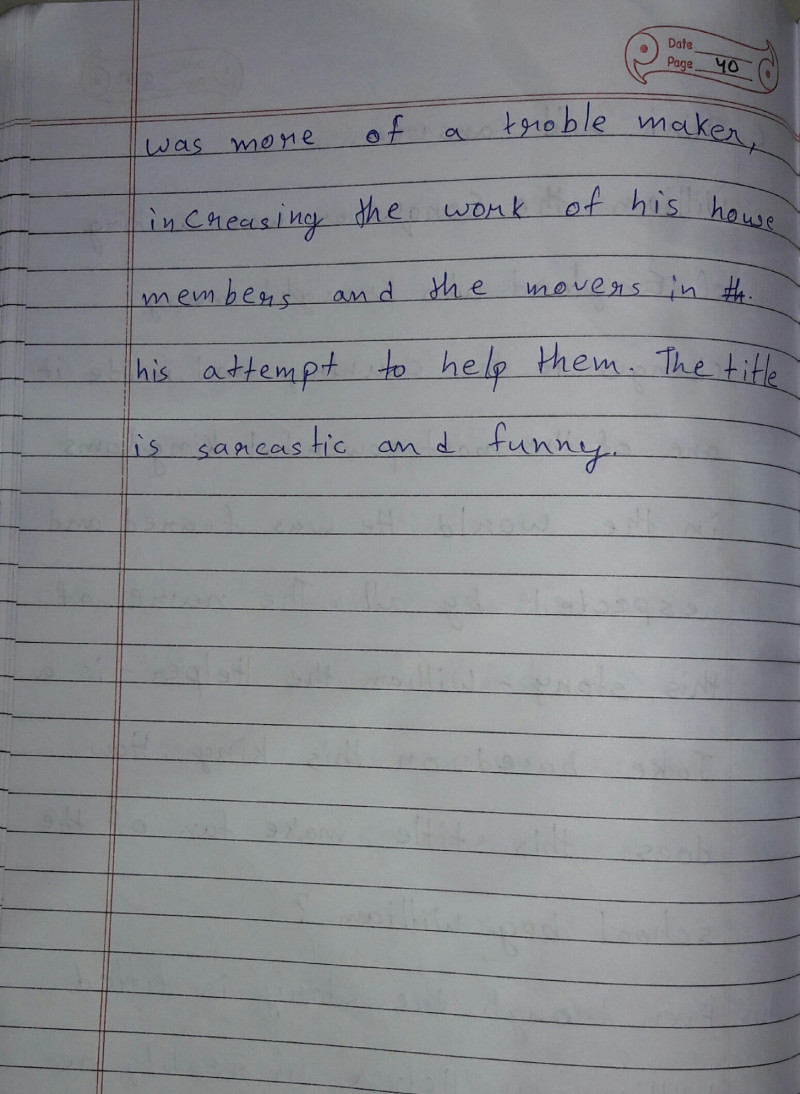 Date
Page 40
was more of a troble maker,
increasing the work of his house
members and the movers in th.
his attempt to help them. The title
is sarcastic and funny.